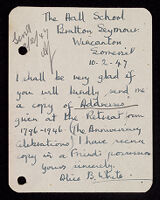 The Hall School
Bratton Seymour
Wincanton
Somerset
10-2-47
I shall be very glad if
you will kindly send me
a copy of Addresses
given at the Retreat from
1796-1946. The Anniversary
Celebrations. I have seen a
copy in a Friend's possession
Yours sincerely,
Alice B. White.